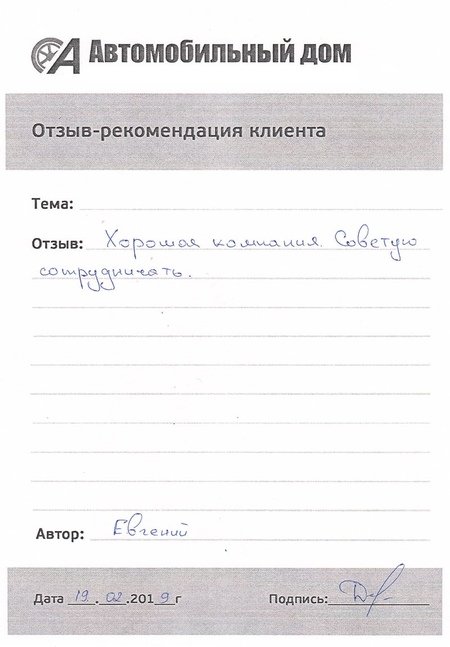 Автомобильный дом
Отзыв-рекомендация клиента
Тема:
Отзыв: Хорошая компания. Советую
сотрудничать.
Автор: Евгений
Дата 19.02.2019г Подпись: